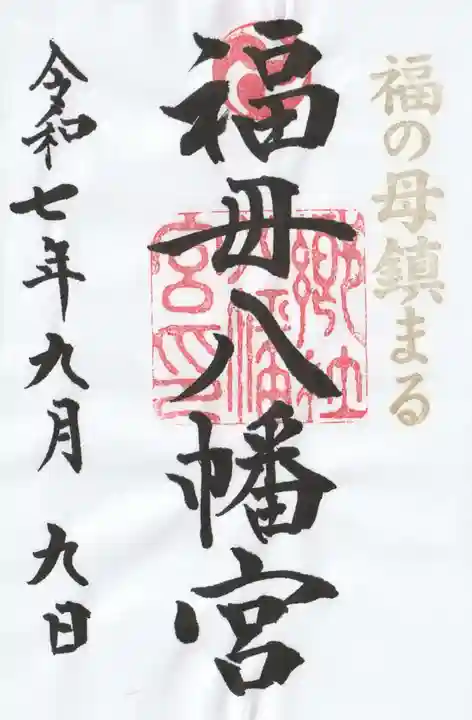 福の母鎮まる
福母八幡宮
郷社八幡宮印
令和七年九月九日